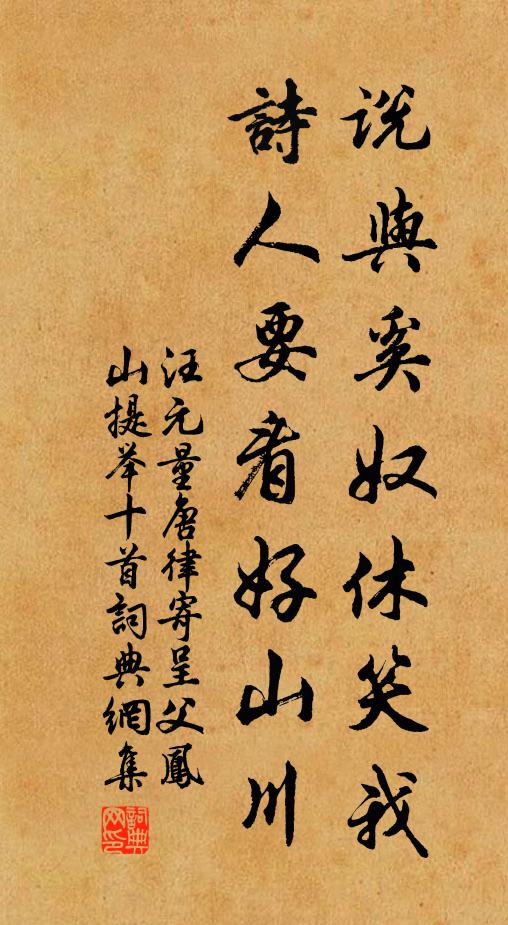 说與奚奴休笑我
詩人要看好山川
汪元量唐律寄呈父鳳
山提举十首詞典網集
詞典网印